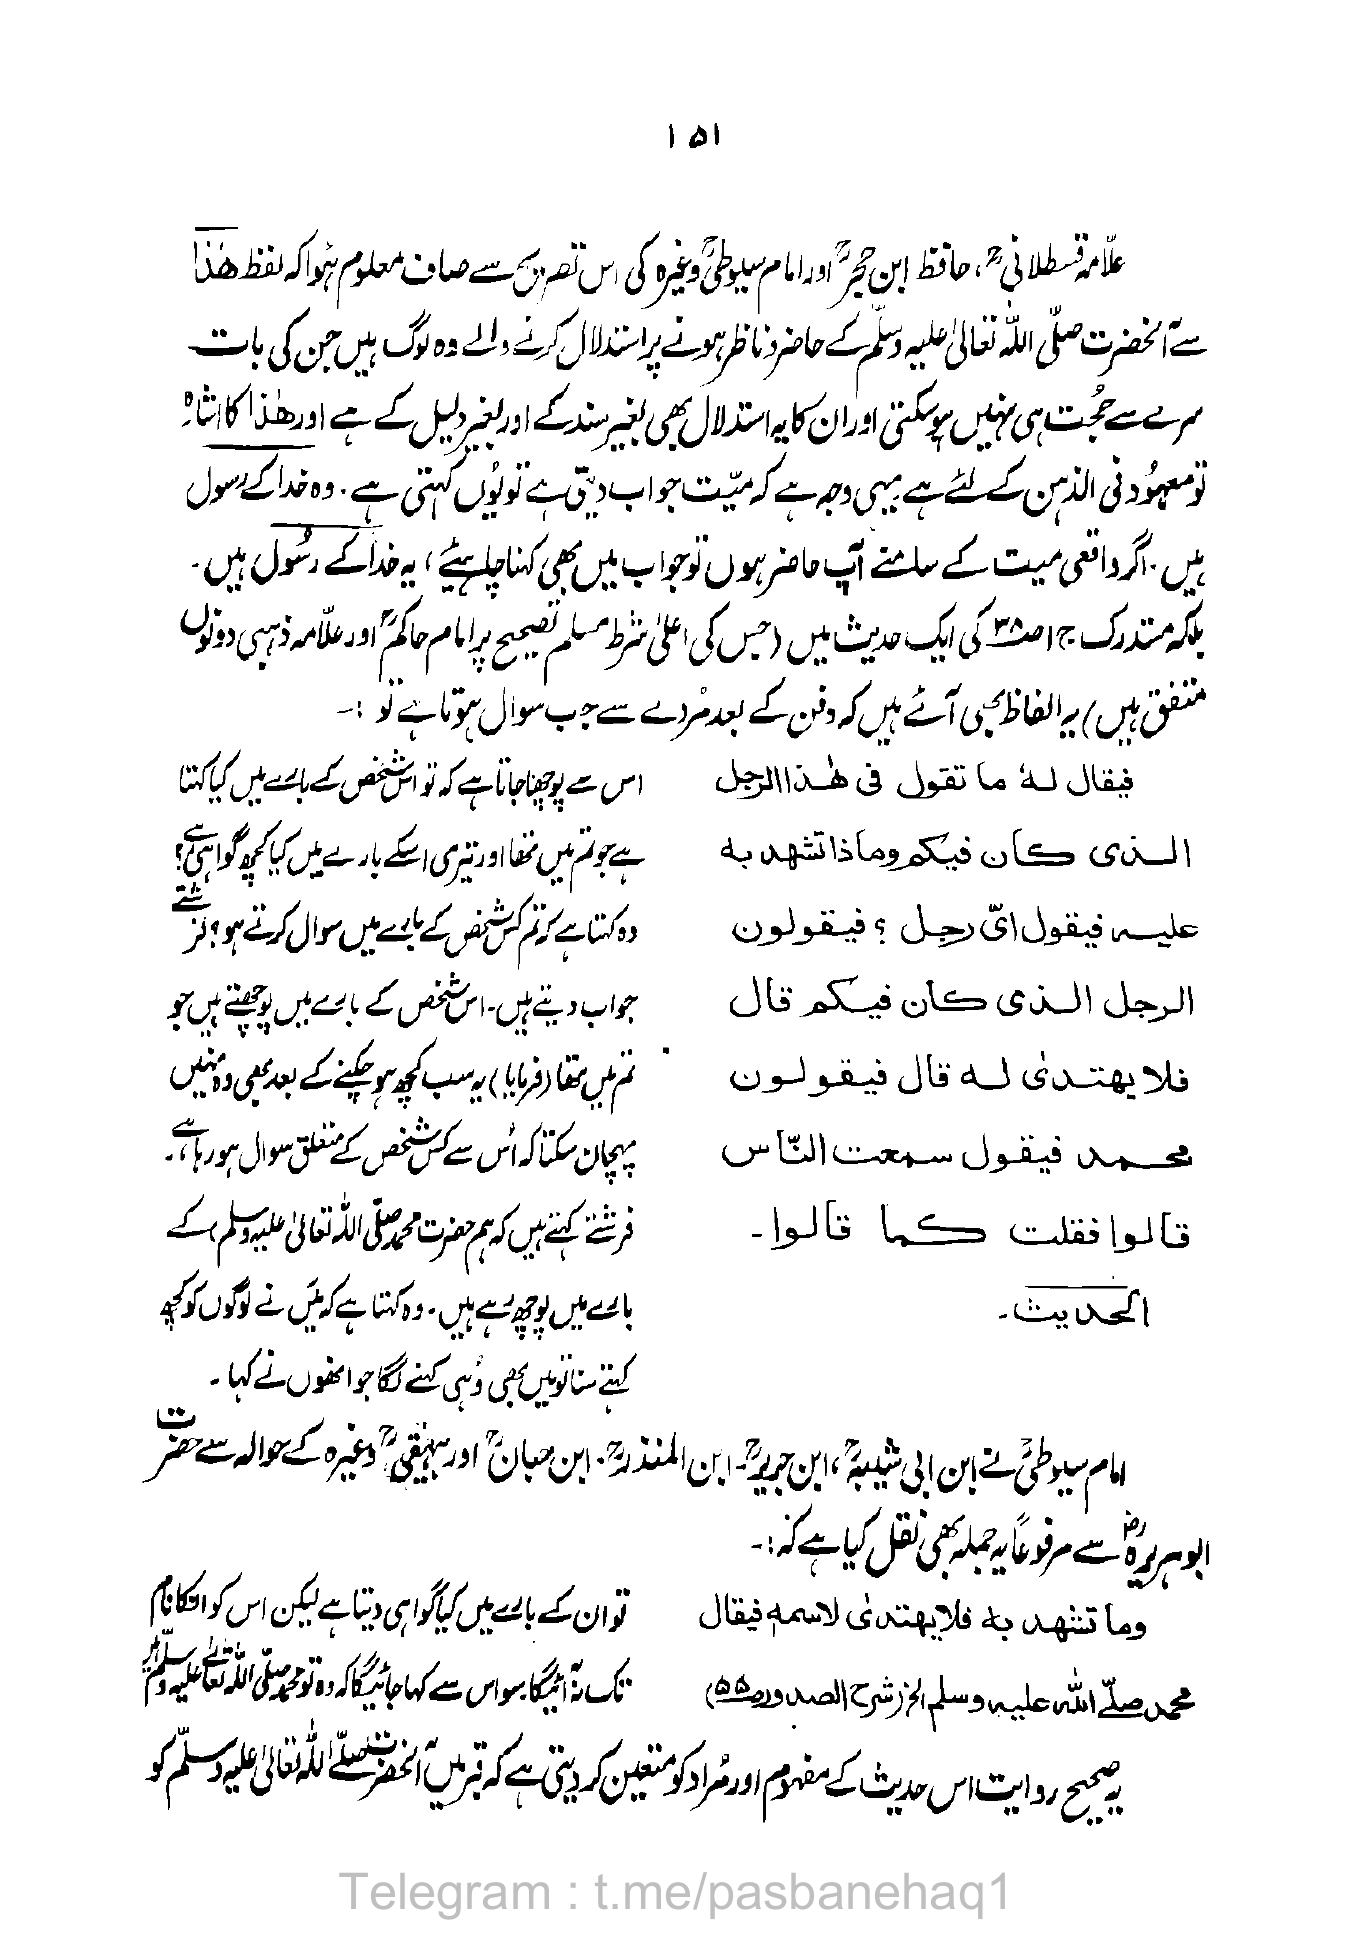 ۱۵۱
علّامہ قسطلانیؒ، حافظ ابن حجرؒ اور امام سیوطیؒ وغیرہ کی اس تصریح سے صاف معلوم ہوا کہ لفظ ھٰذا
سے آنحضرت صلّی اللہ تعالیٰ علیہ وسلّم کے حاضر و ناظر ہونے پر استدلال کرنے والے وہ لوگ ہیں جن کی بات
سرے سے حجُت ہی نہیں ہو سکتی اور ان کا یہ استدلال بھی بغیر سند کے اور بغیر دلیل کے ہے اور ھٰذا کا اشارہ
تو معہوُد فی الذہن کے لئے ہے یہی وجہ ہے کہ میّت جواب دیتی ہے تو یُوں کہتی ہے۔ وہ خدا کے رسول
ہیں۔ اگر واقعی میت کے سامنے آپ حاضر ہوں تو جواب میں بھی کہنا چاہیئے، یہ خدا کے رسُول ہیں۔
بلکہ مستدرک ج ۱ ص۳۸۰ کی ایک حدیث میں (جس کی اعلیٰ شرط مسلم تصحیح پر امام حاکمؒ اور علّامہ ذہبی دونوں
متفق ہیں) یہ الفاظ بھی آئے ہیں کہ دفن کے بعد مُردے سے جب سوال ہوتا ہے تو :۔
فیقال لہٗ ما تقول فی ھٰذا الرجل
الذی کان فیکم وماذا تشھد بہ
علیہ فیقول ایّ رجل ؟ فیقولون
الرجل الذی کان فیکم قال
فلا یھتدیٰ لہ قال فیقولون
محمد فیقول سمعت النّاس
قالوا فقلت کما قالوا۔
الحدیث۔
اس سے پوچھا جاتا ہے کہ تو اس شخص کے بارے میں کیا کہتا
ہے جو تم میں تھا اور تیری اسکے بارے میں کیا کچھ گواہی ہے؟
وہ کہتا ہے کہ تم کس شخص کے بارے میں سوال کرتے ہو؟ فرشتے
جواب دیتے ہیں۔ اس شخص کے بارے میں پوچھتے ہیں جو
تم میں تھا (فرمایا) یہ سب کچھ ہو چکنے کے بعد بھی وہ نہیں
پہچان سکتا کہ اُس سے کس شخص کے متعلق سوال ہو رہا ہے۔
فرشتے کہتے ہیں کہ ہم حضرت محمد صلّی اللہ تعالیٰ علیہ وسلم کے
بارے میں پوچھ رہے ہیں۔ وہ کہتا ہے کہ میَں نے لوگوں کو کچھ
کہتے سنا تو میں بھی وُہی کہنے لگا جو انھوں نے کہا۔
امام سیوطیؒ نے ابن ابی شیبہؒ، ابن جریرؒ۔ ابن المنذرؒ۔ ابن حبانؒ اور بیہقیؒ وغیرہ کے حوالہ سے حضرت
ابو ہریرہؓ سے مرفوعاً یہ جملہ بھی نقل کیا ہے کہ :۔
وما تشھد بہ فلا یھتدیٰ لاسمہ فیقال
محمد صلّے اللہ علیہ وسلم الخ (شرح الصدور ص۵۵)
تو ان کے بارے میں کیا گواہی دیتا ہے لیکن اس کو انکا نام
تک نہ آئیگا سو اس سے کہا جائیگا کہ وہ تو محمد صلّی اللہ تعالیٰ علیہ وسلّم ہیں
یہ صحیح روایت اس حدیث کے مفہوم اور مُراد کو متعین کر دیتی ہے کہ قبر میں آنحضرت صلّے اللہ تعالیٰ علیہ وسلّم کو
Telegram : t.me/pasbanehaq1